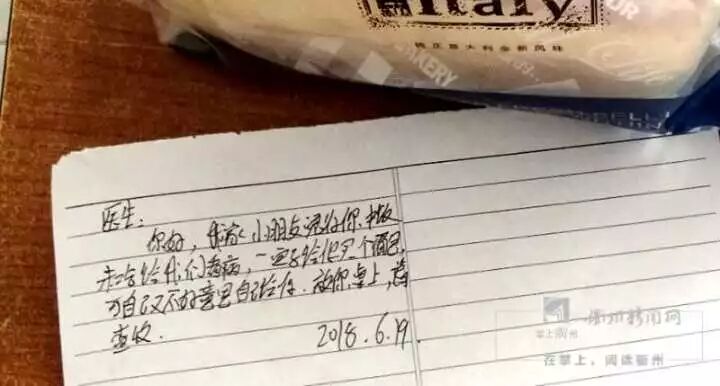 Italy
意大利全新风味
BAKERY
医生:
你好，我家小朋友 你早饭
未吃给我们看病，一定要给你买个面包，
可自己又不好意思自己给你.放你桌上，请
查收.
2018.6.19.
掌上衢州 衢州新闻网
在掌上，阅读衢州